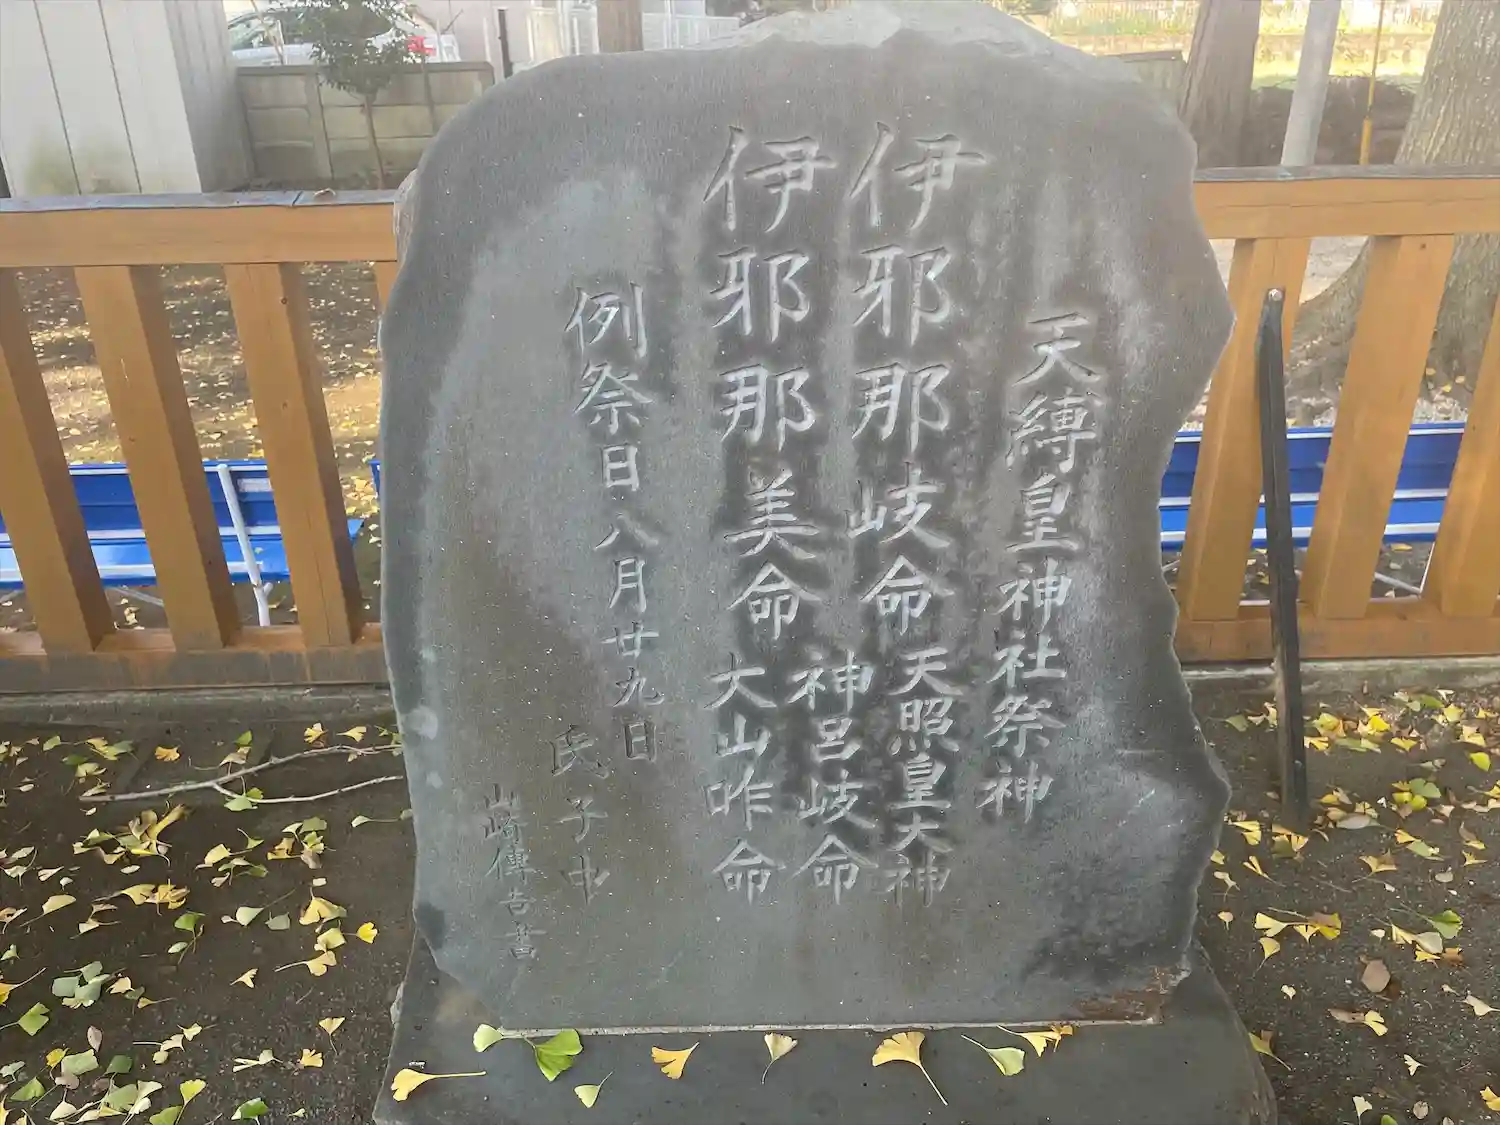 天縛皇神社祭神
伊邪那岐命 天照皇大神
神呂岐命
伊邪那美命 大山咋命
例祭日八月廿九日
氏子中
山崎傳吉書